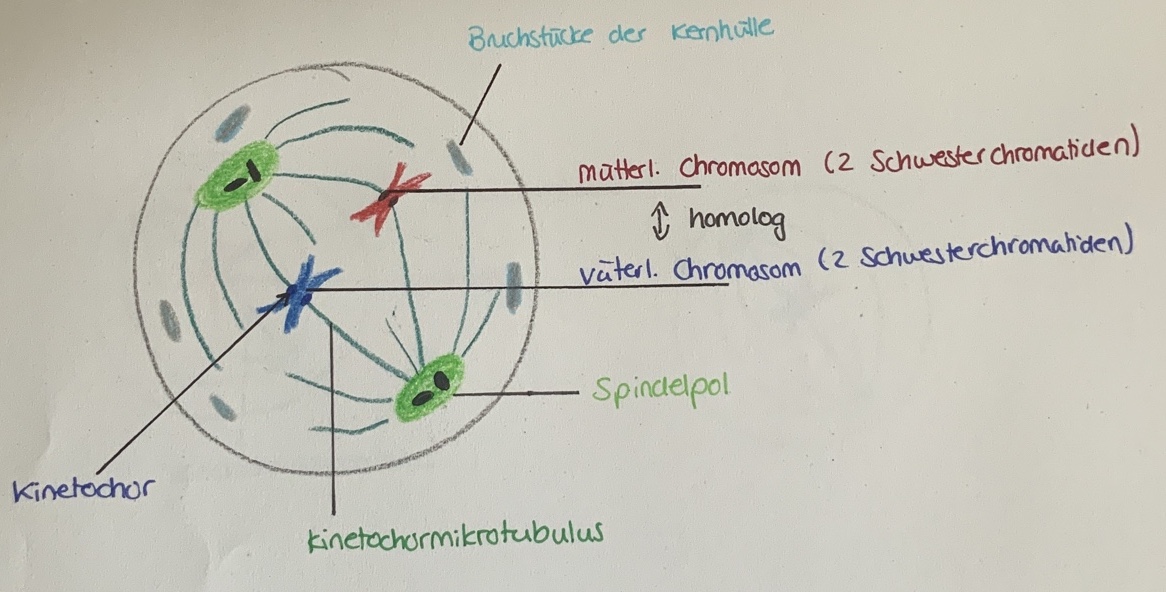 Bruchstücke der Kernhülle
mütterl. Chromosom (2 Schwesterchromatiden)
↕ homolog
väterl. Chromosom (2 Schwesterchromatiden)
Spindelpol
Kinetochor
Kinetochormikrotubulus